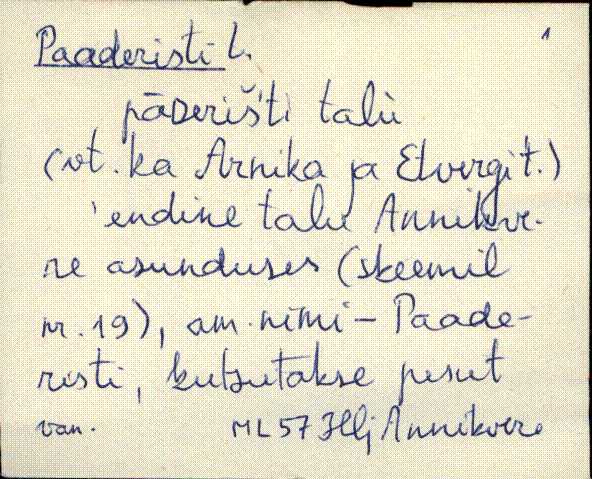 Paaderisti t. 1
pāᴅeriš'ti talù
(vt. ka Arnika ja Elvergi t.)
'endine talu Annikve-
re asunduses (skeemil
nr. 19), am. nimi - Paade-
risti, kutsutakse
van. ML 57 Hlj Annikvere